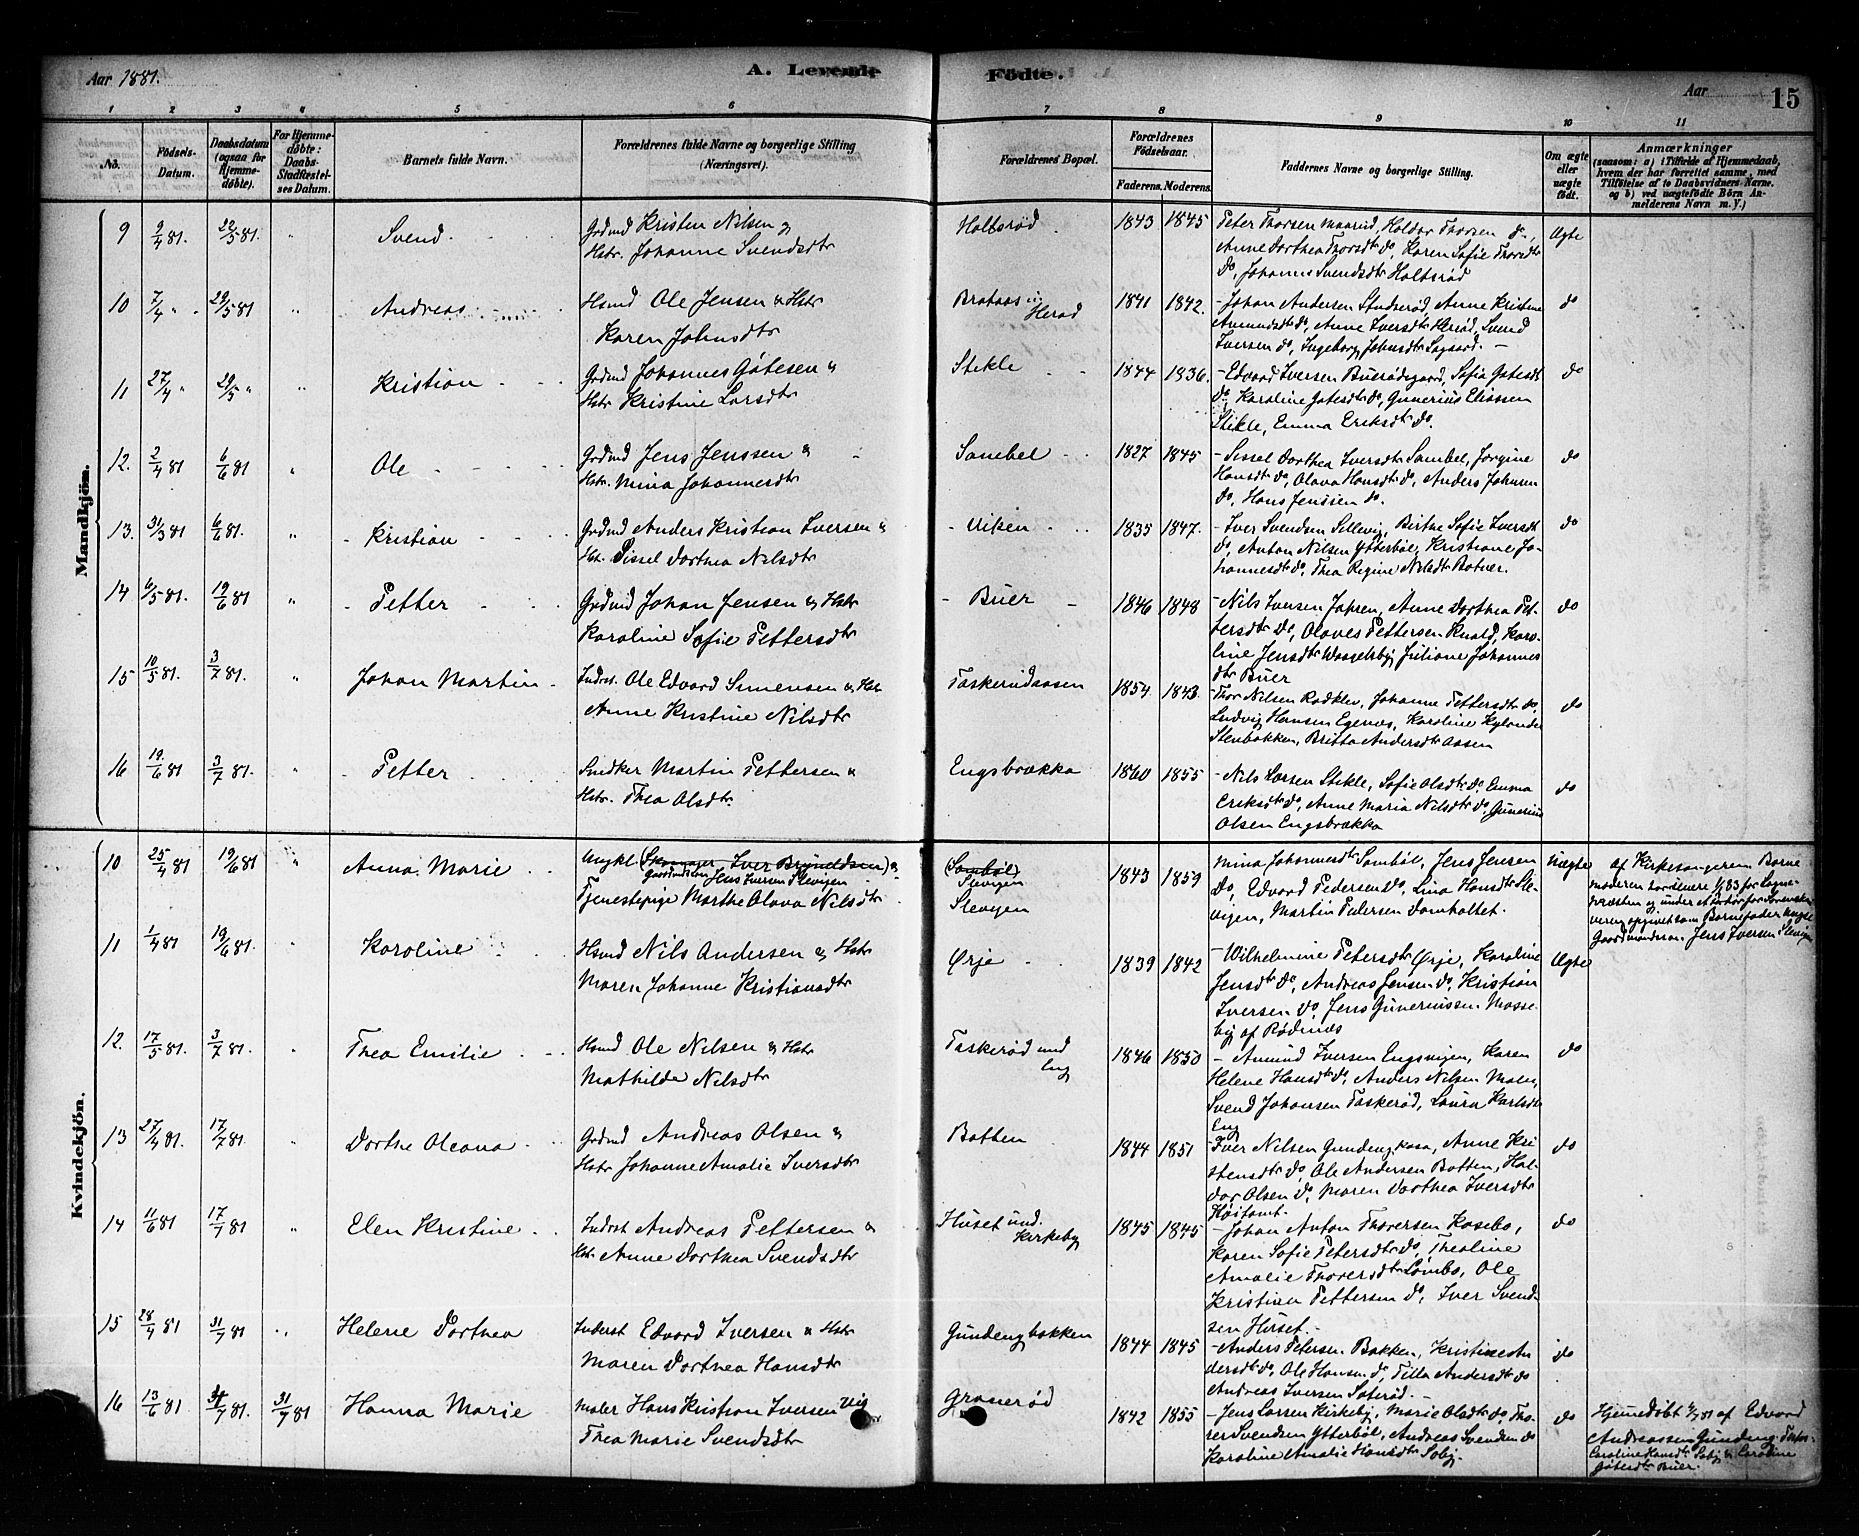 Aar 1881.
A. Levende Födte.
Aar
15
1 2 3 4 5 6 7 8 9 10 11
No.
Födsels-
Datum.
Daabsdatum
(ogsaa för
Hjemme-
döbte).
For Hjemme-
döbte:
Daabs-
Stadfæstel-
ses Datum.
Barnets fulde Navn.
Forældrenes fulde Navne og borgerlige Stilling
(Næringsvei).
Forældrenes Bopæl.
Forældrenes
Födselsaar.
Faderens. Moderens.
Faddernes Navne og borgerlige Stilling.
Om ægte
eller
uægte
födt.
Anmærkninger
(saasom: a) i Tilfælde af Hjemmedaab,
hvem der har forrettet samme, med
Tilföielse af to Daabsvidners Navne.
og b) ved uægtefödte Börn An-
melderens Navn m. v.)
Mandkjön.
9 9/4 81. 22/5 81. " Svend
Grdmd Kristen Nilsen &
Hstr. Johanne Svendsdtr
Holtsrød 1843 1845
Peter Thorsen Maarud, Haldor Thorsen do,
Anne Dorthea Thorsdtr do, Karen Sofie Thorsdtr
do, Johanne Svendsdtr Holtsrød
Ægte
10 7/4 " 29/5 81 " Andreas
Hsmd Ole Jensen & Hstr
Karen Johnsdtr
Brataas i
Herød
1841 1842.
- Johan Andersen Studserød, Anne Kristine
Amundsdtr do, Anne Iversdtr Herød, Svend
Iversen do, Ingeborg Johnsdtr
do
11 27/4 " 29/5 " " Kristian
Grdmd Johannes Gøtesen &
Hstr Kristine Larsdtr
Stikle 1844 1836.
- Edvard Iversen Buerødegaard, Sofie Gøtesdtr
do, Karoline Gøtesdtr do, Gunerius Eliassen
Stikle, Emma Eriksdtr do.
do
12. 2/4 81 6/6 81 " Ole
Grdmd Jens Jenssen &
Hstr. Mina Johannesdtr
Sambøl 1827 1845
- Sissel Dorthea Iversdtr Sambøl, Jørgine
Hansdtr do, Olava Hansdtr do, Anders Johnsen
do, Hans Jenssen do.
do
13. 31/3 81 6/6 81. " Kristian
Grdmd Anders Kristian Iversen &
Hstr. Sissel Dorthea Nilsdtr
Viken 1835 1847.
- Iver Svendsen Sletevig, Birthe Sofie Iversdtr
do, Anton Nilsen Ytterbøl, Kristiane Jo-
hannesdtr do, Thea Regine Nilsdtr Botner.
do
14 6/5 81. 19/6 81 " Petter
Grdmd Johan Jensen & Hstr
Karoline Sofie Pettersdtr
Buer 1846 1848
- Nils Iversen Jahren, Anne Dorthea Pet-
tersdtr do, Olaves Pettersen Knold, Karo-
line Jensdtr Waagelsby, Juliane Johannes
dtr Buer
do
15 10/5 81. 3/7 81. " Johan Martin
Inderst. Ole Edvard Simensen & Hstr
Anne Kristine Nilsdtr
Taskerudaasen 1854 1843
- Thor Nilsen Rødklev, Johanne Pettersdtr do,
Ludvig Hansen Egenæs, Karoline Hylander
Stenbakken, Britta Andersdtr Aasen
do
16 19/6 81 3/7 81. " Petter
Snedker Martin Pettersen &
Hstr. Thea Olsdtr.
Engsbrækka 1860 1855
- Nils Larsen Stikle, Sofie Olsdtr do, Emma
Eriksdtr do, Anne Maria Nilsdtr do, Gunerius
Olsen Engsbrækka
do
Kvindekjön.
10 25/4 81 19/6 81 " Anna Marie
Ungkl (Skomager Iver Bryneldsen) &
Gaardmdsøn Jens Iversen Slevigen
Tjenestepige Marthe Olava Nilsdtr
(Sambøl)
Slevigen
Slevigen
1843 1859
Mina Johannesdtr Sambøl, Jens Jensen
do, Edvard Pedersen do, Lina Hansdtr Sle-
vigen, Martin Pedersen Damholtet.
Uægte
af Kirkesangeren Barne
moderen har senere 1/1 83 for Sogne-
præsten og under et
opgivet som Barnefader Ungkl
Gaardmandssøn Jens Iversen Slevigen
11 1/4 81 19/6 81. " Karoline
Hsmd Nils Andersen & Hstr
Maren Johanne Kristiansdtr
Ørje 1839 1842
- Wilhelmine Petersdtr Ørje, Karoline
Jensdtr do, Andreas Jensen do, Kristian
Iversen do, Jens Gunerius en Mosse-
by af Rødenæs
Ægte
12. 17/5 81. 3/7 81. " Thea Emilie
Hsmd Ole Nilsen & Hstr
Mathilde Nilsdtr
Taskerød und
Eng
1846 1850
- Amund Iversen Engsvigen, Karen
Helene Hansdtr do, Anders Nilsen Moler,
Svend Johansen Taskerød, Laura Karlsdtr
Eng
do
13 27/4 81. 17/7 81 " Dorthe Oleana
Grdmd Andreas Olsen &
Hstr Johanne Amalie Iversdtr
Botten 1844 1851
- Iver Nilsen Gundengkasa, Anne Kri
stensdtr do, Ole Andersen Botten, Hal-
dor Olsen do, Maren Dorthea Iversdtr
Høitomt.
do
14 11/6 81 17/7 81 " Elen Kristine
Inderst Andreas Pettersen &
Hstr Anne Dorthea Svendsdtr
Huset und.
Kirkeby
1845 1845
- Johan Anton Thoresen Kasebo,
Karen Sofie Petersdtr do, Theoline
Amalie Thoresdtr Lømbo, Ole
Kristian Pettersen do, Iver Svend-
sen Huset.
do
15 28/4 81 31/7 81 " Helene Dorthea
Inderst Edvard Iversen & Hstr
Maren Dorthea Hansdtr
Gundengbakken 1844 1845
- Anders Petersen Bakken, Kristine An
dersdtr do, Ole Hansen do, Tilla Andersdtr do
Andreas Iversen Søterød.
do
16 13/6 81 31/7 81. 31/7 81 Hanna Marie
Maler Hans Kristian Iversen Vig
Thea Marie Svendsdtr
Granerød 1842 1855
- Jens Larsen Kirkeby, Marie Olsdtr do, Tho-
rer Svendsen Ytterbøl, Andreas Svendsen do
Karoline Amalie Hansdtr Soby.
do
Hjemmedøbt 4/7 81 af Edvard
Andreassen Gundeng.
Caroline Hansdtr Soby & Caroline
Gøtesdtr Buer.